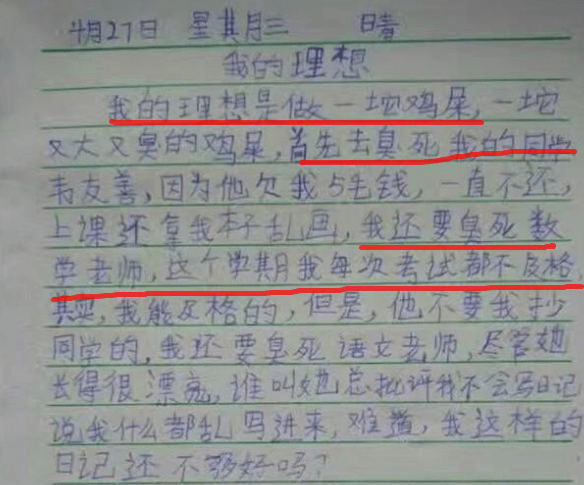 4月27日 星其月三 晴
我的理想
我的理想是做一坨鸡屎,一坨
又大又臭的鸡屎,首先去臭死我的同学
韦友善,因为他欠我5毛钱,一直不还,
上课还拿我本子乱画,我还要臭死数
学老师,这个学期我每次考试都不及格,
其实,我能及格的,但是,他不要我抄
同学的,我还要臭死语文老师,尽管她
长得很漂亮,谁叫她总批评我不会写日记
说我什么都乱写进来,难道,我这样的
日记还不够好吗?